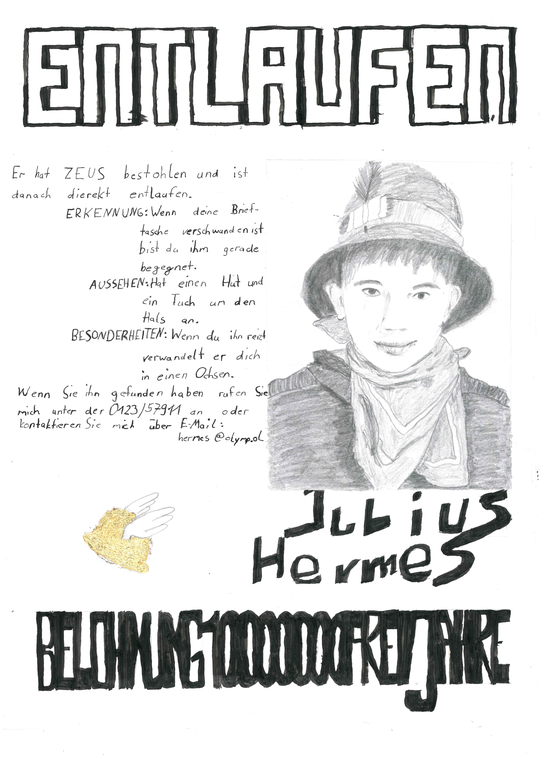 ENTLAUFEN
Er hat ZEUS bestohlen und ist
danach dierekt entlaufen.
ERKENNUNG: Wenn deine Brief-
tasche verschwanden ist
bist du ihm gerade
begegnet.
AUSSEHEN: Hat einen Hut und
ein Tuch um den
Hals an.
BESONDERHEITEN: Wenn du ihn reist
verwandelt er dich
in einen Ochsen.
Wenn Sie ihn gefunden haben rufen Sie
mich unter der 0123/57911 an oder
kontaktieren Sie mich über E-Mail:
hermes@olymp.ol
Julius
Hermes
BELOHNUNG FREIJAHRE